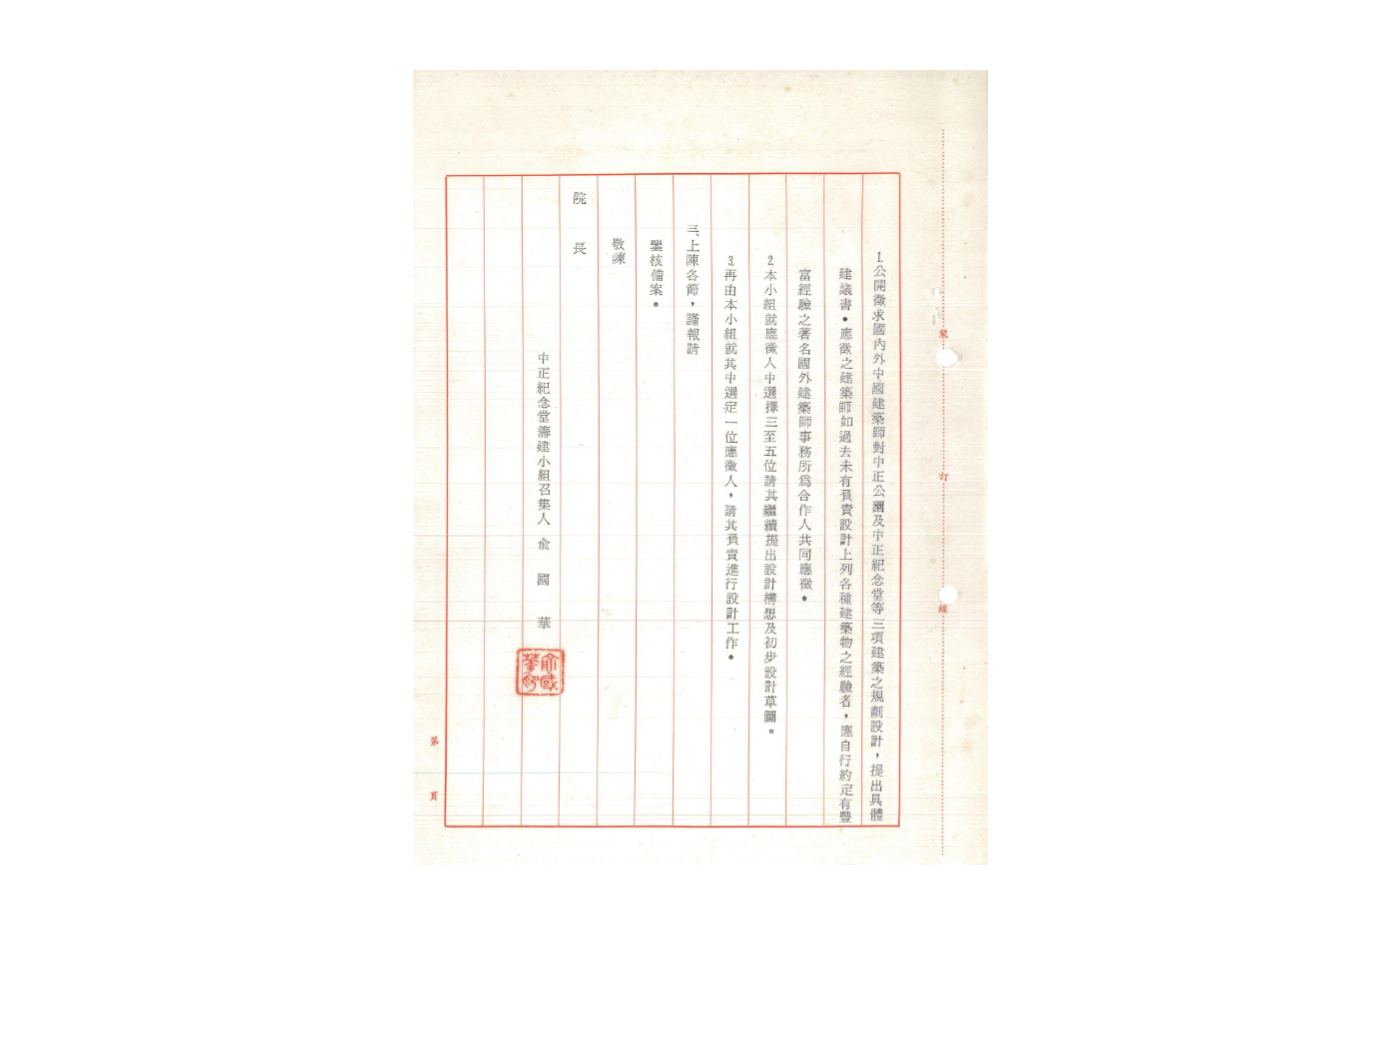 1.公開徵求國內外中國建築師對中正公園及中正紀念堂等三項建築之規劃設計，提出具體
建議書。應徵之建築師如過去未有負責設計上列各種建築物之經驗者，應自行約定有豐
富經驗之著名國外建築師事務所爲合作人共同應徵。
2.本小組就應徵人中選擇三至五位請其繼續提出設計構想及初步設計草圖。
3.再由本小組就其中選定一位應徵人，請其負責進行設計工作。
三、上陳各節，謹報請
鑒核備案。
敬陳
院長
中正紀念堂籌建小組召集人 俞國華
俞國華印
裝 訂 線
第 頁